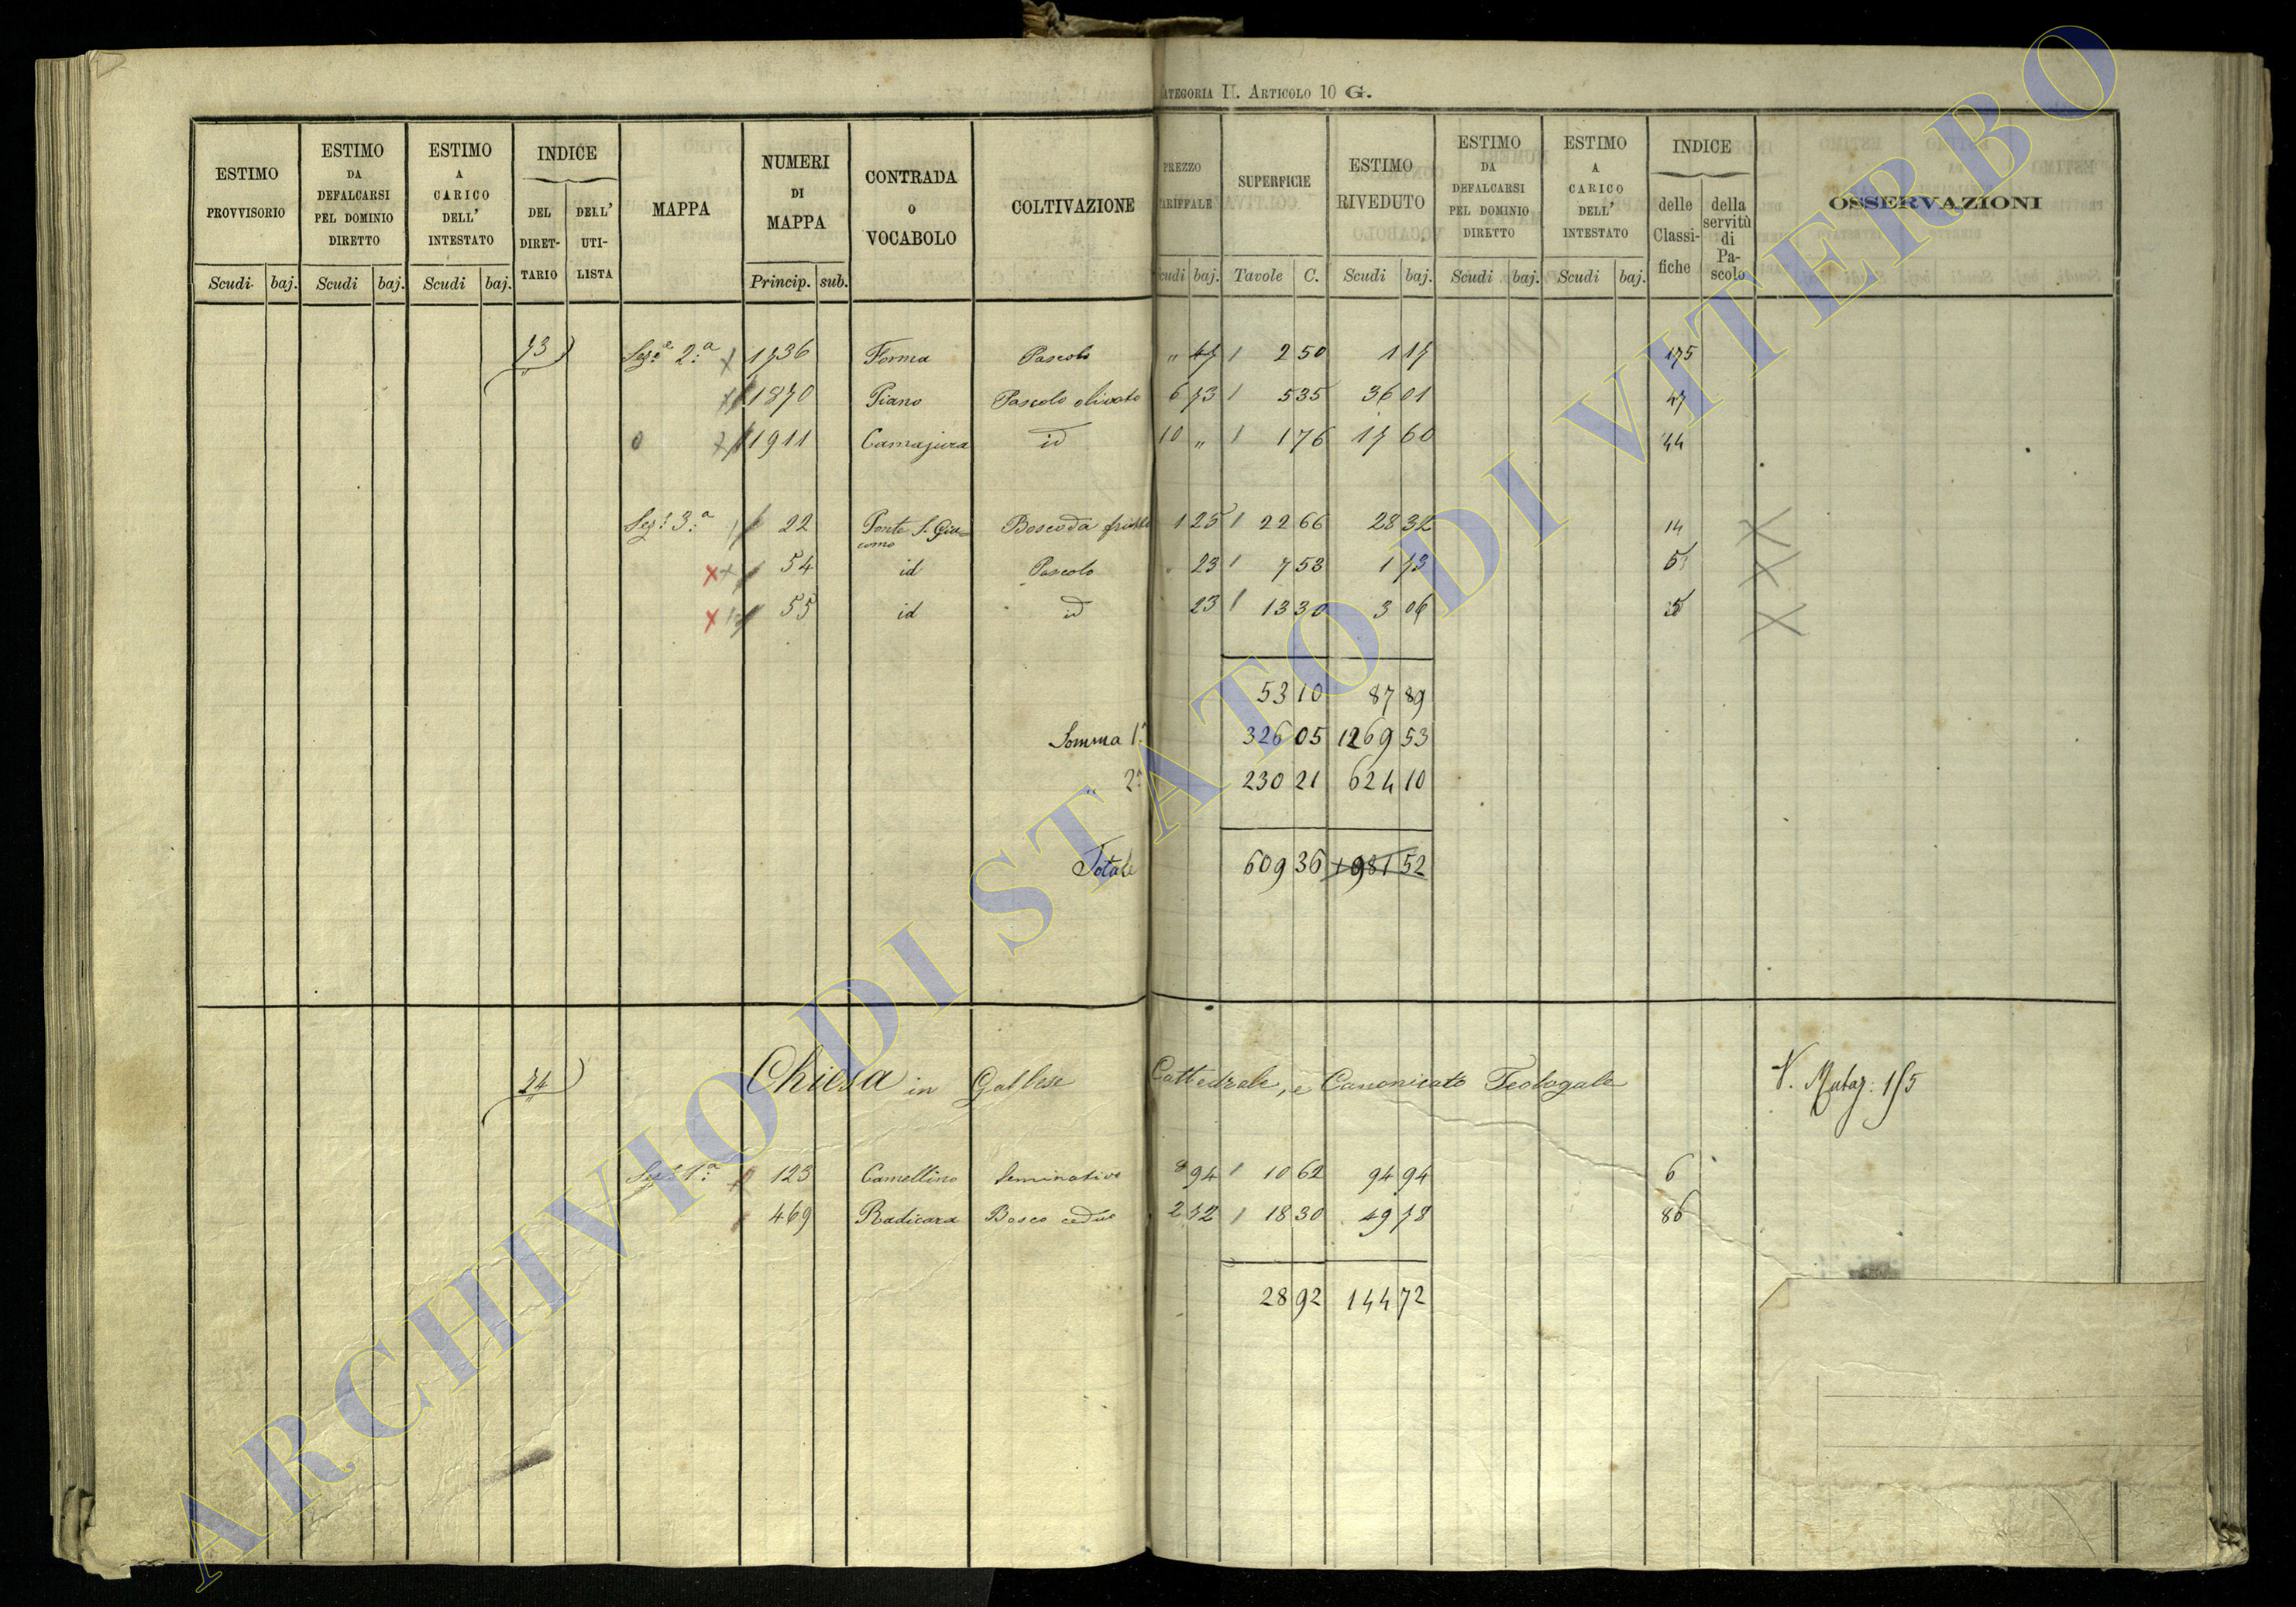 CATEGORIA II. ARTICOLO 10 G.
ESTIMO PROVVISORIO Scudi baj.
ESTIMO DA DEFALCARSI PEL DOMINIO DIRETTO Scudi baj.
ESTIMO A CARICO DELL' INTESTATO Scudi baj.
INDICE DEL DIRETTARIO DELL' UTILISTA
MAPPA
NUMERI DI MAPPA Princip. sub.
CONTRADA O VOCABOLO
COLTIVAZIONE
PREZZO TARIFFALE Scudi baj.
SUPERFICIE Tavole C.
ESTIMO RIVEDUTO Scudi baj.
ESTIMO DA DEFALCARSI PEL DOMINIO DIRETTO Scudi baj.
ESTIMO A CARICO DELL' INTESTATO Scudi baj.
INDICE delle Classifiche della servitù di Pascolo
OSSERVAZIONI
73 Sez.e 2.a 1736 Forma Pascolo „ 47 2 50 1 17 175
1870 Piano Pascolo olivato 6 73 5 35 36 01 47
1911 Camajura id 10 „ 1 76 17 60 44
Sez. 3.a 22 Ponte S. Giacomo Bosco da frutto 1 25 22 66 28 32 14
54 id Pascolo 23 7 53 1 73 5
55 id id 23 13 30 3 06 5
53 10 87 89
Somma 1.a 326 05 1269 53
„ 2.a 230 21 624 10
Totale 609 36 1981 52
74 Chiesa in Gallese Cattedrale, e Canonicato Teologale V. Mutaz:
Sez. 1.a 123 Camellino Seminativo 8 94 10 62 94 94 6
469 Radicara Bosco ceduo 2 72 18 30 49 78 86
28 92 144 72
ARCHIVIO DI STATO DI VITERBO